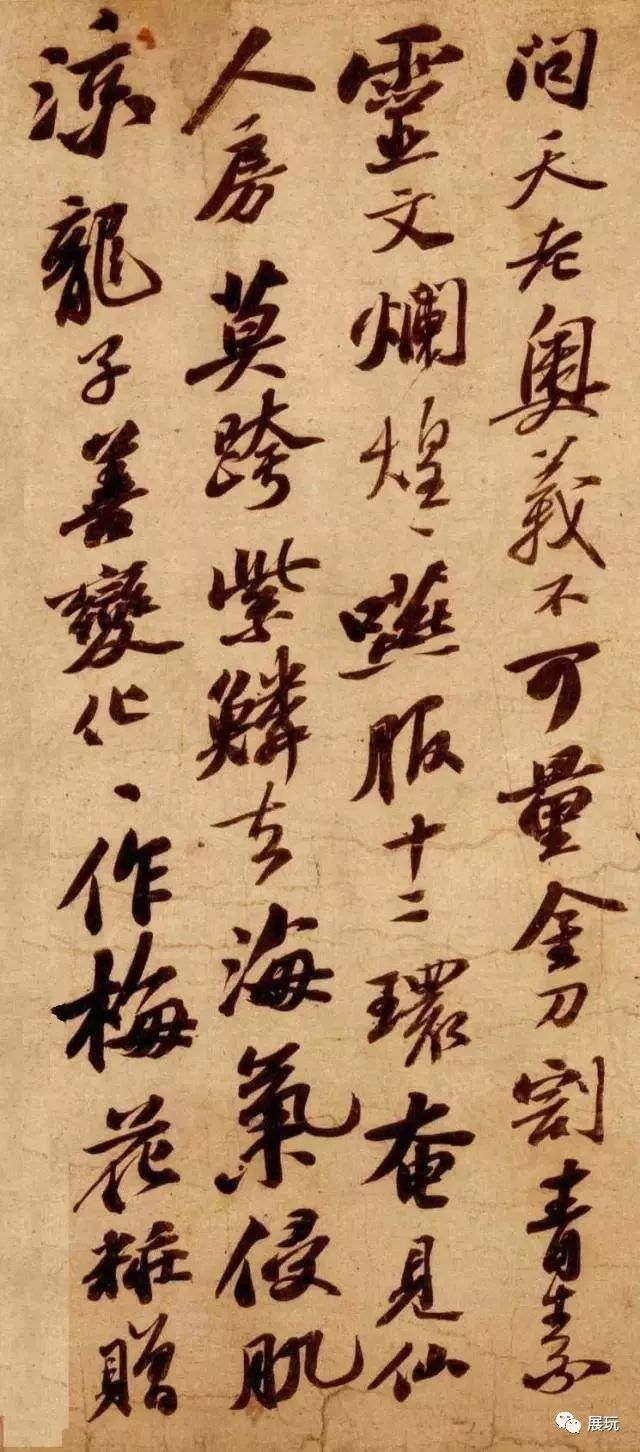 問天老奧義不可量金刀割青素
靈文爛煌〻嚥服十二環奄見仙
人房莫跨紫鱗去海氣侵肌
涼龍子善變化〻作梅花粧贈
展玩